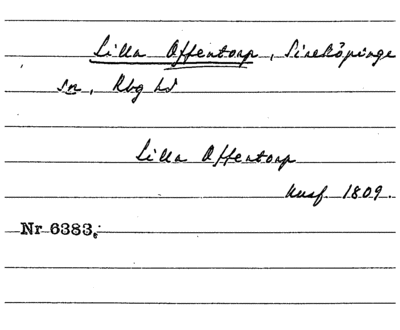 Lilla Offentorp, Sireköpinge
sn, Rbg hd
Lilla Offentorp
Kusf. 1809.
Nr 6383.